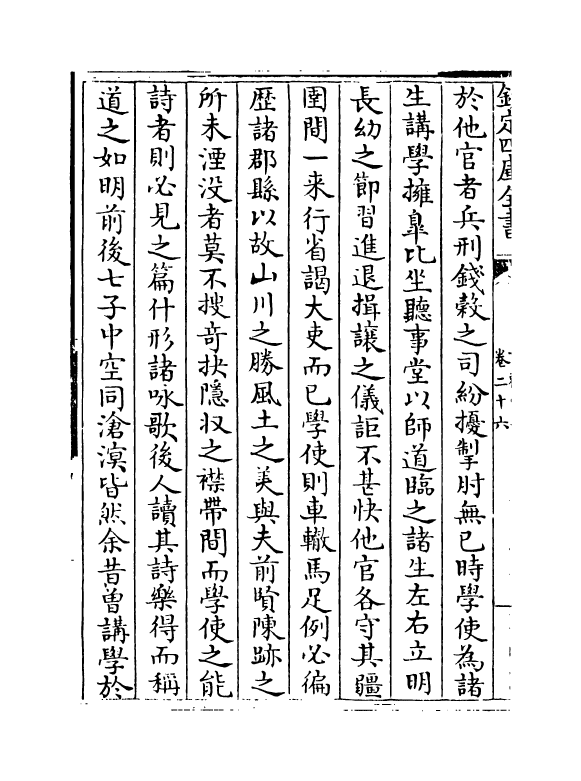 欽定四庫全書
卷二十六
於他官者兵刑錢穀之司紛擾掣肘無已時學使為諸
生講學擁臯比坐聽事堂以師道臨之諸生左右立明
長幼之節習進退揖讓之儀詎不甚快他官各守其疆
圉間一来行省謁大吏而已學使則車轍馬足例必徧
歴諸郡縣以故山川之勝風土之美與夫前賢陳跡之
所未湮没者莫不搜竒抉隱収之襟帶間而學使之能
詩者則必見之篇什形諸咏歌後人讀其詩樂得而稱
道之如明前後七子中空同滄溟皆然余昔曽講學於